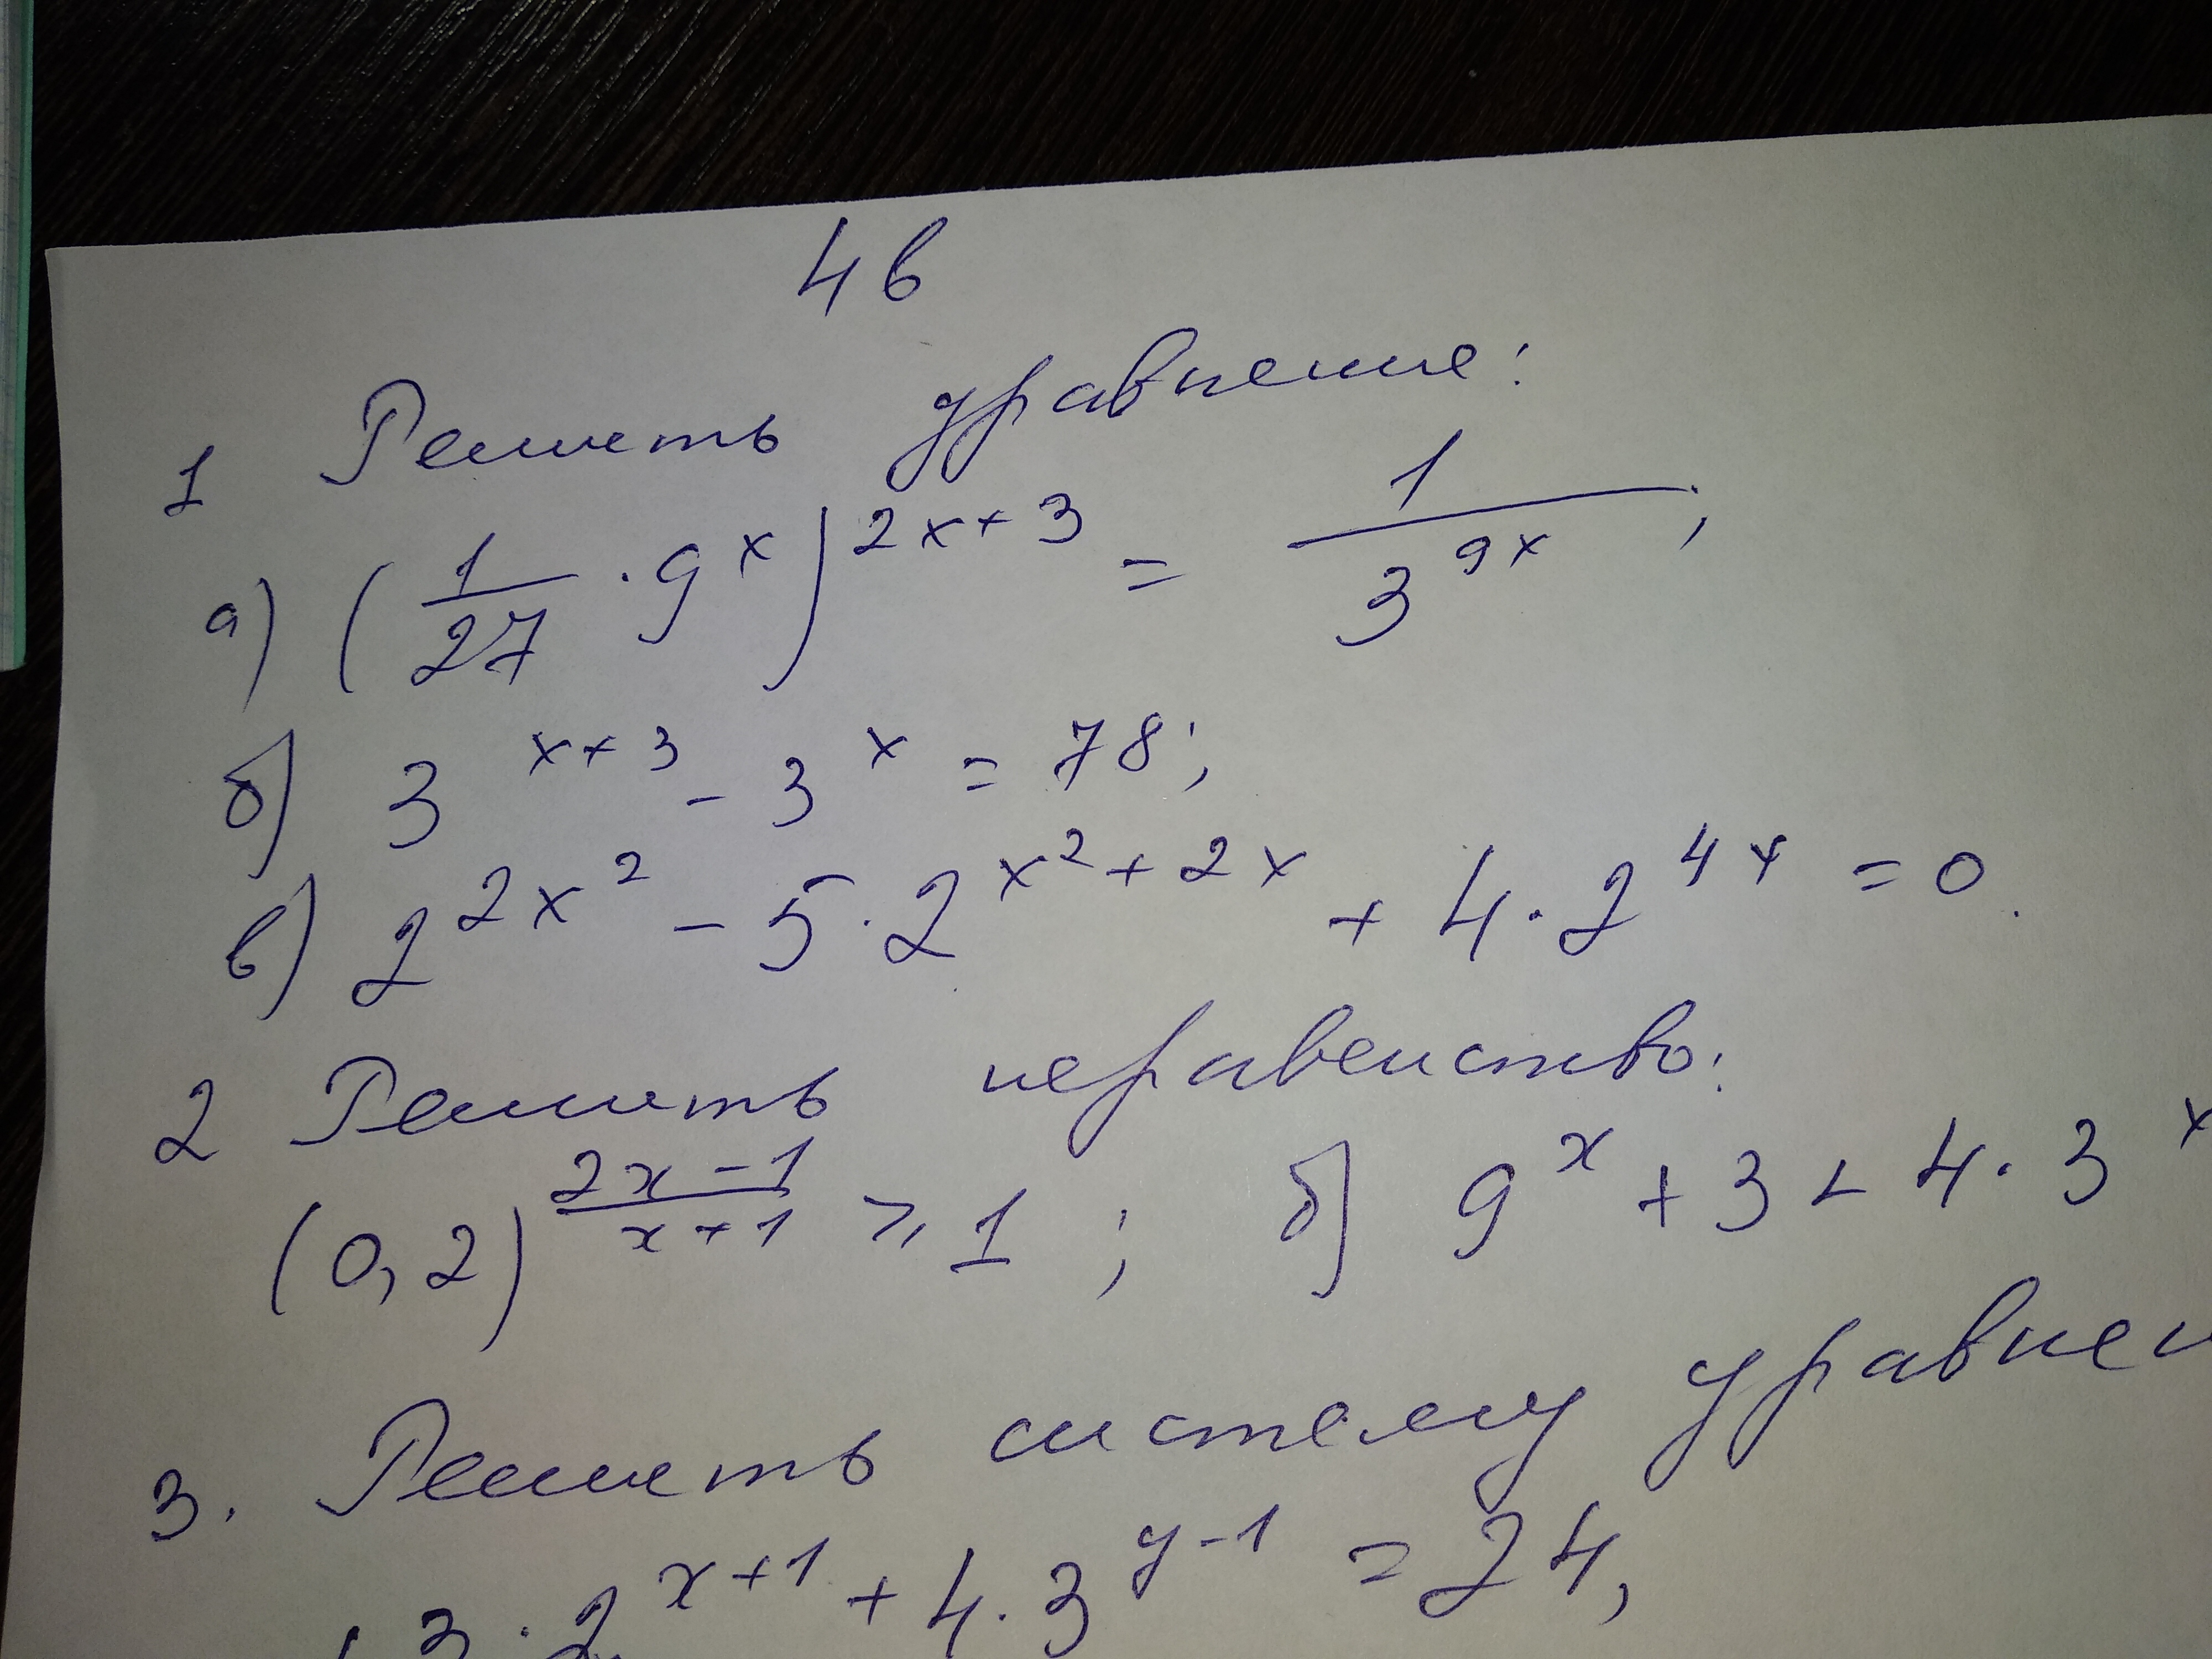 4в
1 Решить уравнение:
а) (1/27 · 9^x)^(2x+3) = 1/3^(9x);
б) 3^(x+3) - 3^x = 78;
в) 2^(2x^2) - 5·2^(x^2+2x) + 4·2^(4x) = 0.
2 Решить неравенство:
(0,2)^((2x-1)/(x+1)) ⩾ 1; б) 9^x + 3 < 4·3^x
3. Решить систему уравнен
3·2^(x+1) + 4·3^(y-1) = 24,